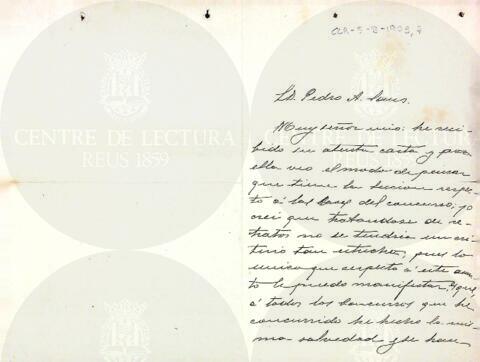 CLR-5-B-1903, 7
CENTRE DE LECTURA
REUS 1859
CENTRE DE LECTURA
REUS 1859
Sr. D. Pedro A.
Muy señor mio: he reci-
bido su atenta carta y por
ella veo el modo de pensar
que tiene la Seccion respec-
to á las bases del concurso; yo
crei que tratandose de re-
tratos no se tendria un cri-
terio tan estrecho, pues lo
unico que respecto á este asun-
to le puedo manifestar, es que
á todos los concursos que he
concurrido he hecho la mis-
ma salvedad y se han